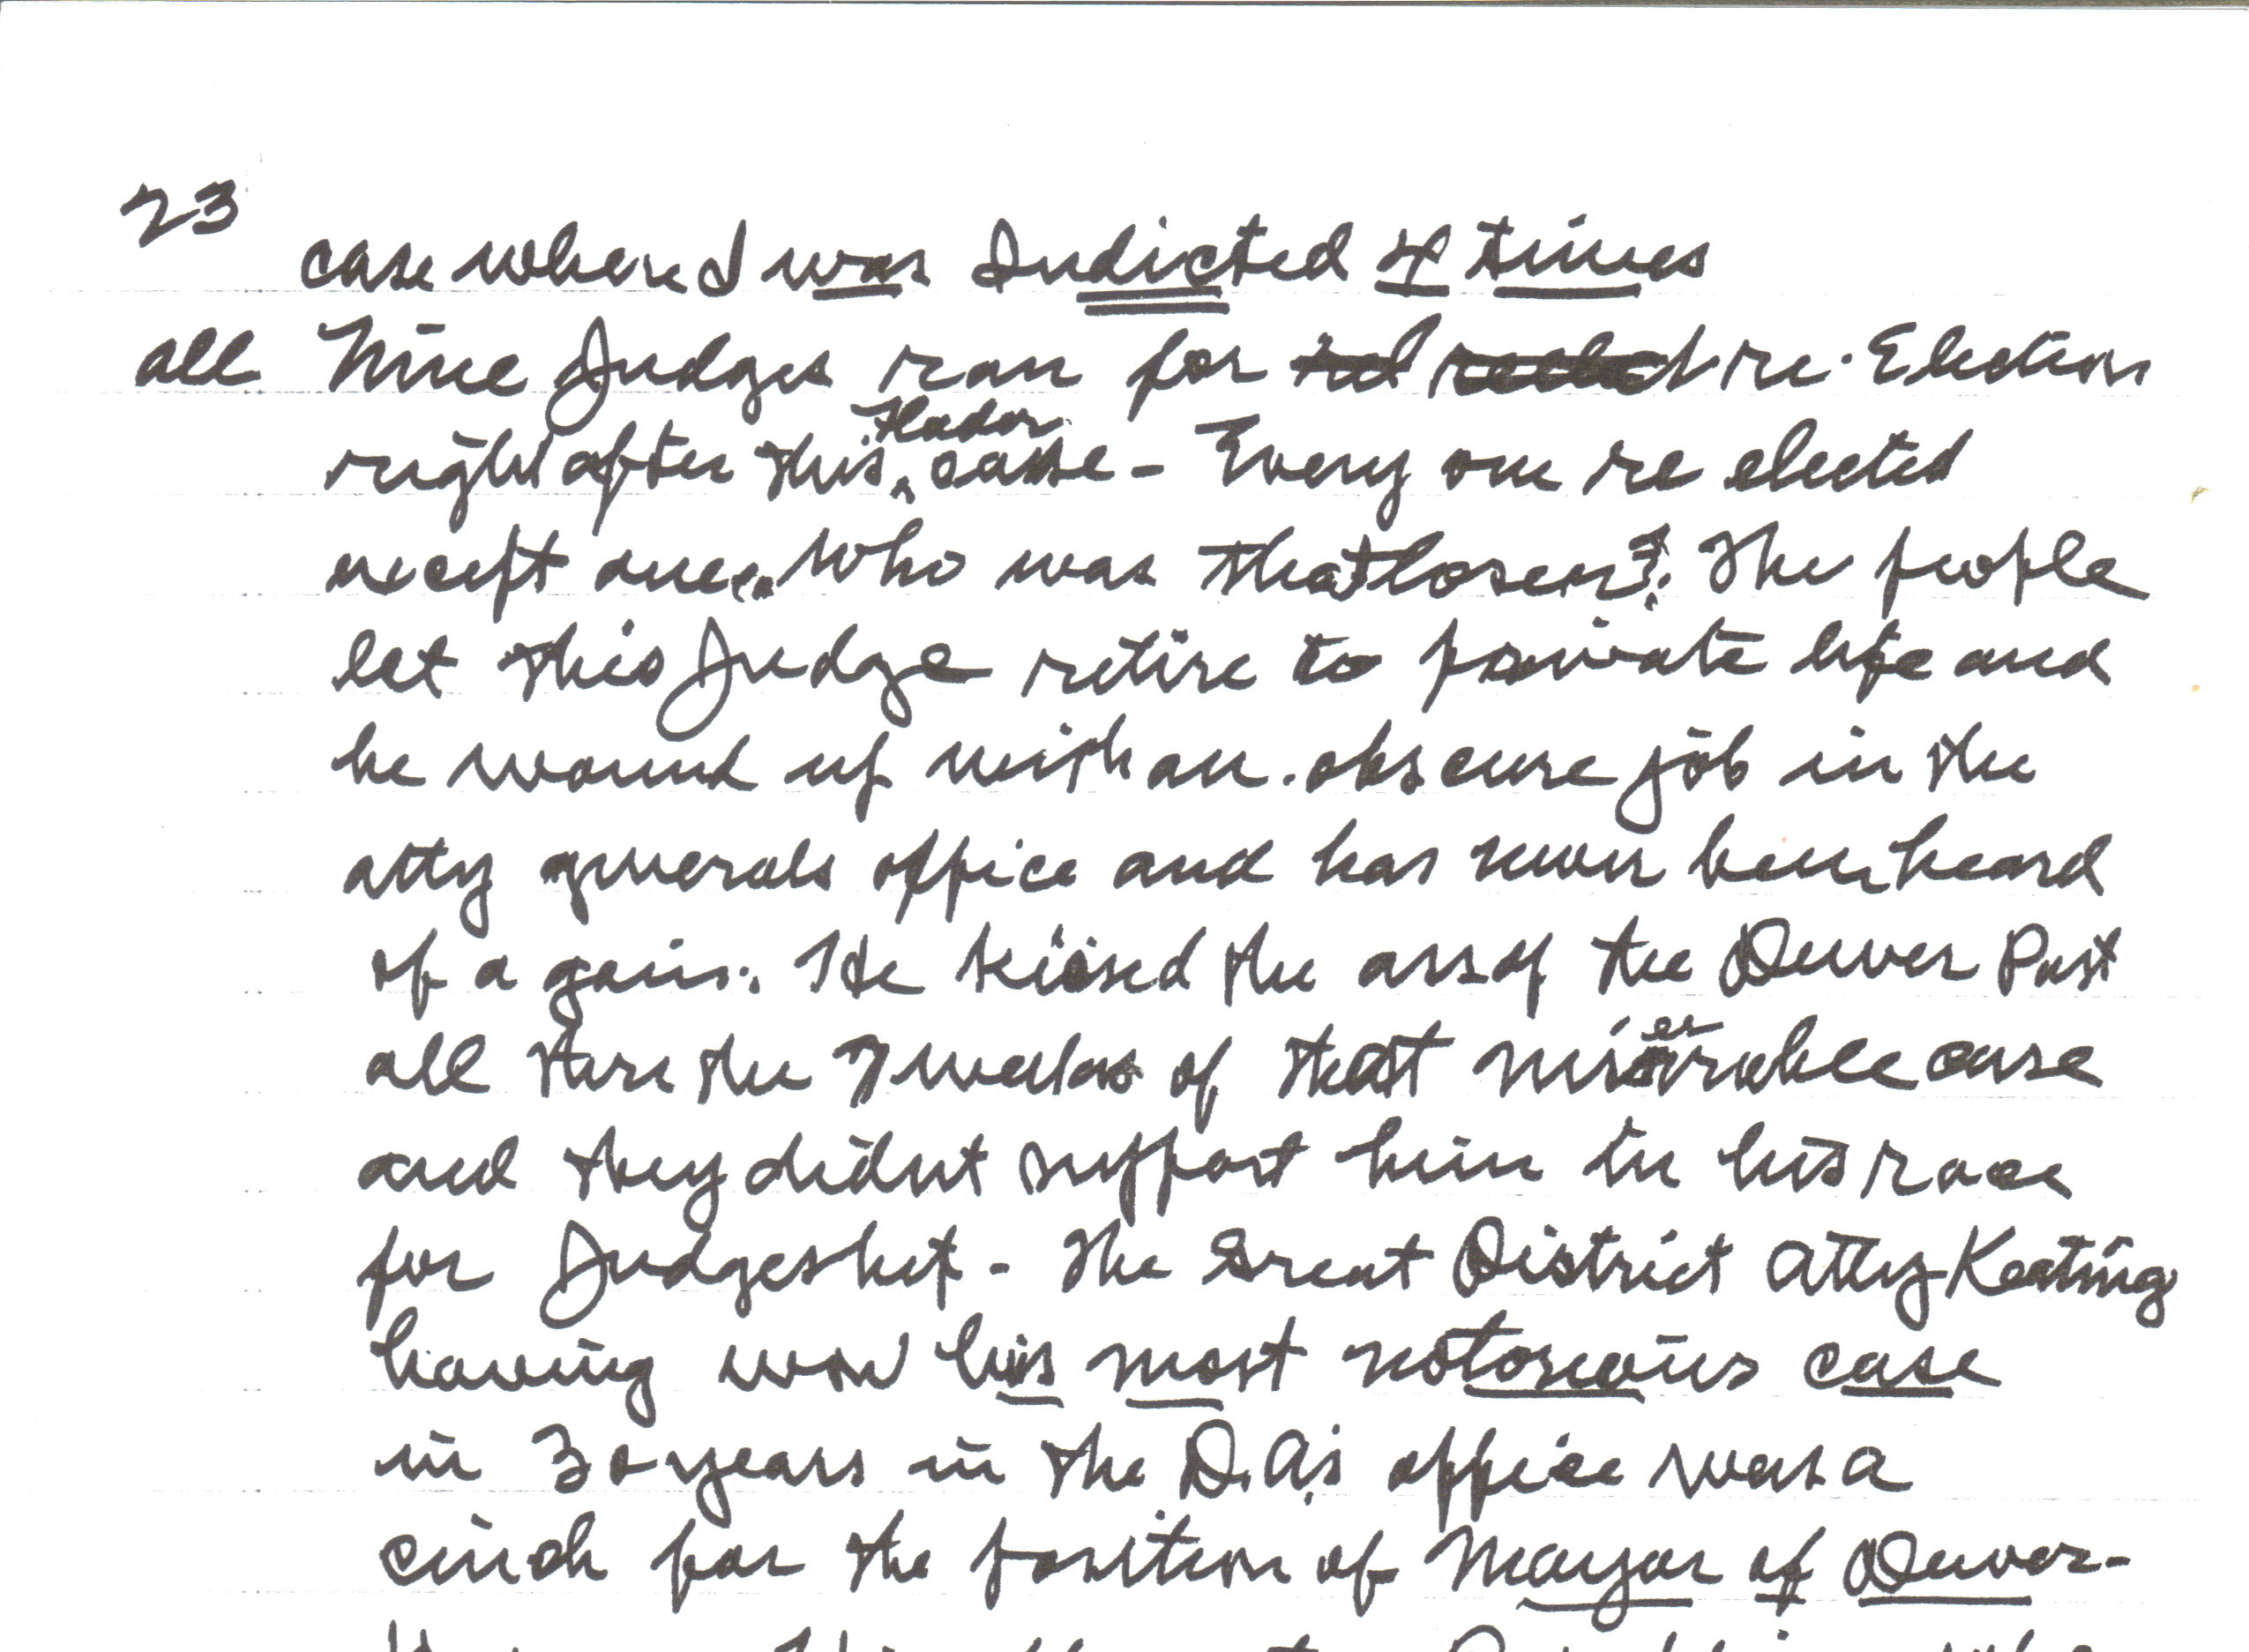 23
case where I was Indicted 4 times
all Nine Judges ran for re-Election
right after this case - Every one re elected
except one. Who was that loser? The people
let this Judge retire to private life and
he wound up with an obscure job in the
atty generals office and has never been heard
of again. He kissed the ass of the Denver Post
all thru the 7 weeks of that miserable case
and they didnt support him in his race
for Judgeship - The Great District Atty Keating
having won his most notorious case
in 30 years in the D.A's office was a
cinch for the position of Mayor of Denver-